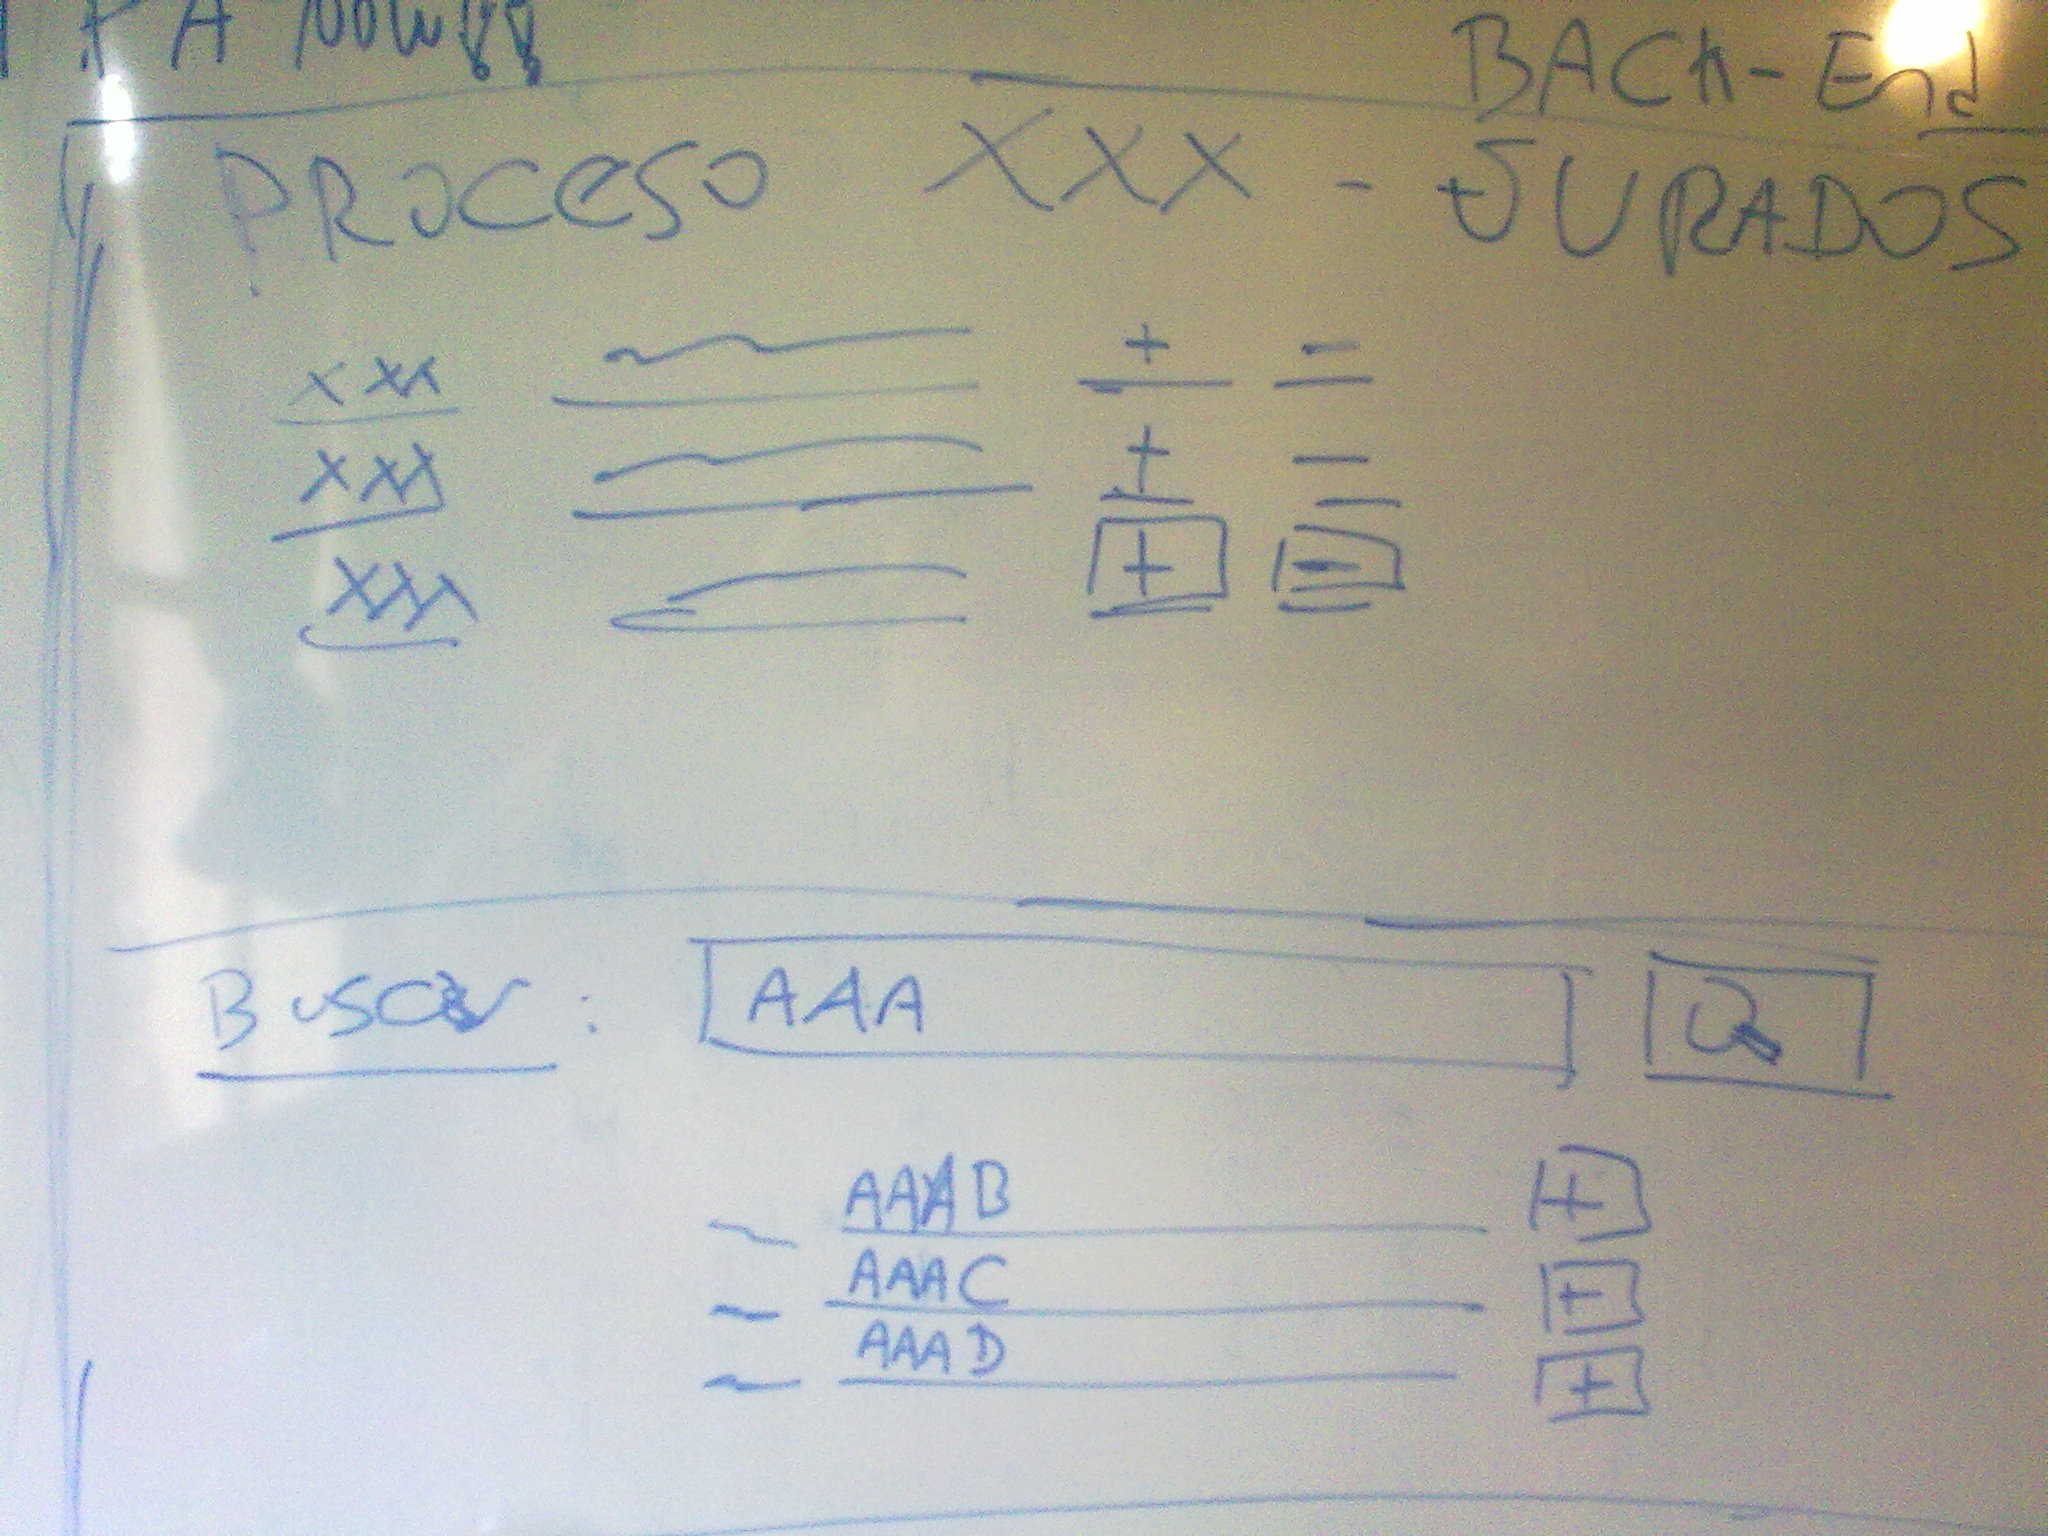 BACK-End
PROCESO XXX - JURADOS
XXX + -
XXX + -
XXX + -
Buscar : AAA
AAAB +
AAAC +
AAAD +